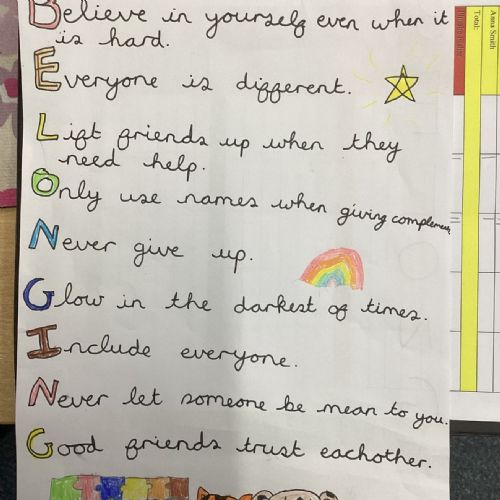 Believe in yourself even when it
is hard.
Everyone is different.
Lift friends up when they
need help.
Only use names when giving complements.
Never give up.
Glow in the darkest of times.
Include everyone.
Never let someone be mean to you.
Good friends trust eachother.
Anna Smith
Total: